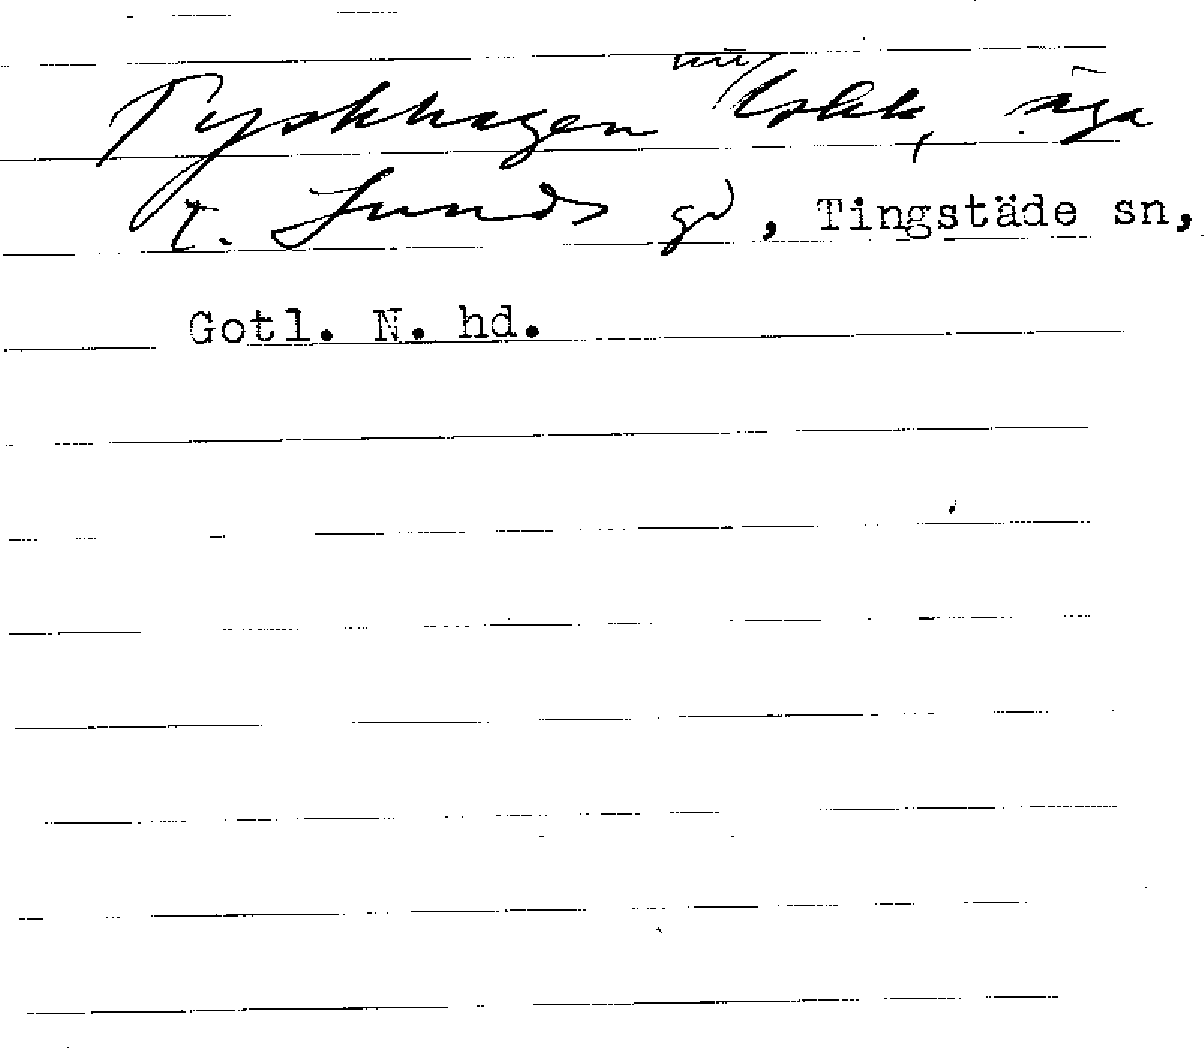 Tyskhagen nu äga
t. Lunds gd, Tingstäde sn,
Gotl. N. hd.